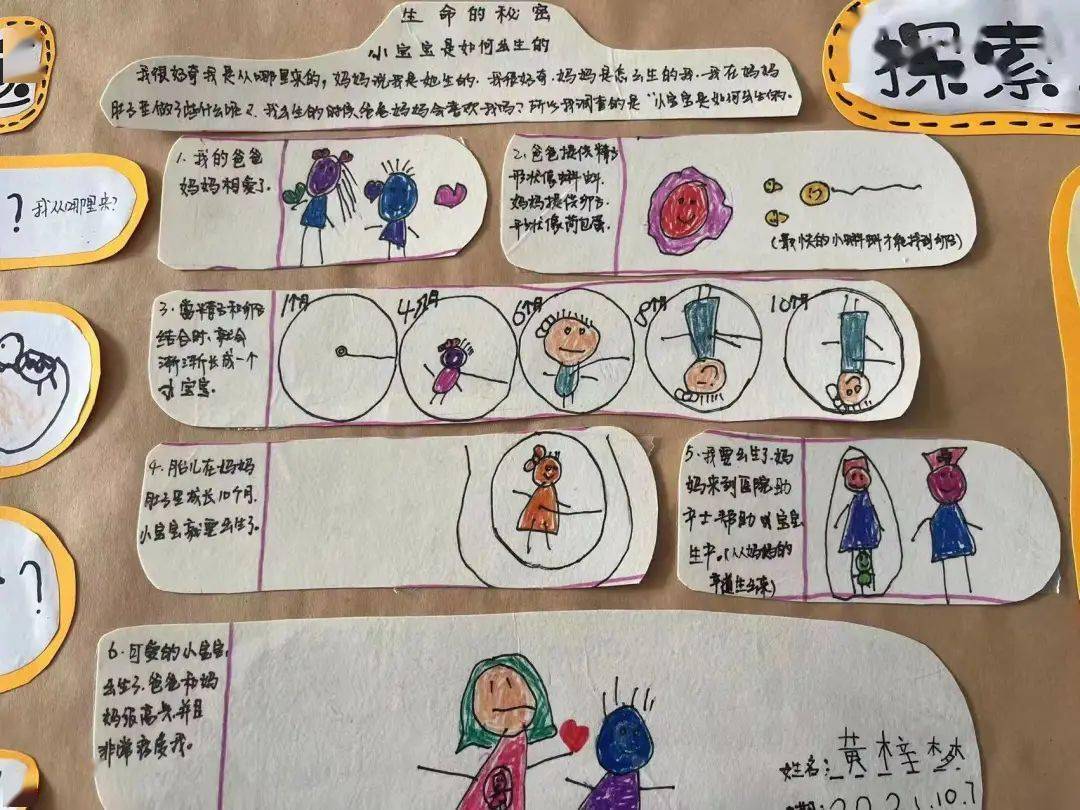 生命的秘密
小宝宝是如何出生的
我很好奇我是从哪里来的,妈妈说我是她生的.我很好奇.妈妈是怎么生的我.我在妈妈
肚子里做了些什么呢?我出生的时候爸爸妈妈会喜欢我吗?所以我调查的是"小宝宝是如何出生的。
探索
?我从哪里来?
1.我的爸爸
妈妈相爱了.
2.爸爸提供精子
形状像蝌蚪.
妈妈提供卵子
形状像荷包蛋.
(最快的小蝌蚪才能找到卵子)
3.当精子和卵子
结合时,就会
渐渐长成一个
小宝宝。
1个月
4-5月
6个月
8个月
10个月
4.胎儿在妈妈
肚子里成长10个月.
小宝宝就要出生了。
5.我要出生了.妈
妈来到医院助
护士帮助小宝宝
生下。(从妈妈的
产道生出来)
?
6.可爱的小宝宝
出生了.爸爸和妈
妈很高兴.并且
非常疼爱我。
姓名:黄梓梦
2021.10.7